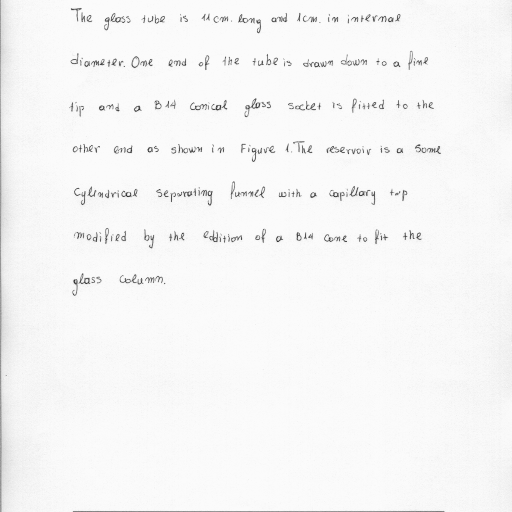 The glass tube is 11cm. long and 1cm. in internal
diameter. One end of the tube is drawn down to a fine
tip and a B14 conical glass socket is fitted to the
other end as shown in Figure 1. The reservoir is a Some
Cylindrical Separating funnel with a capillary tap
modified by the eddition of a B14 Cone to fit the
glass column.